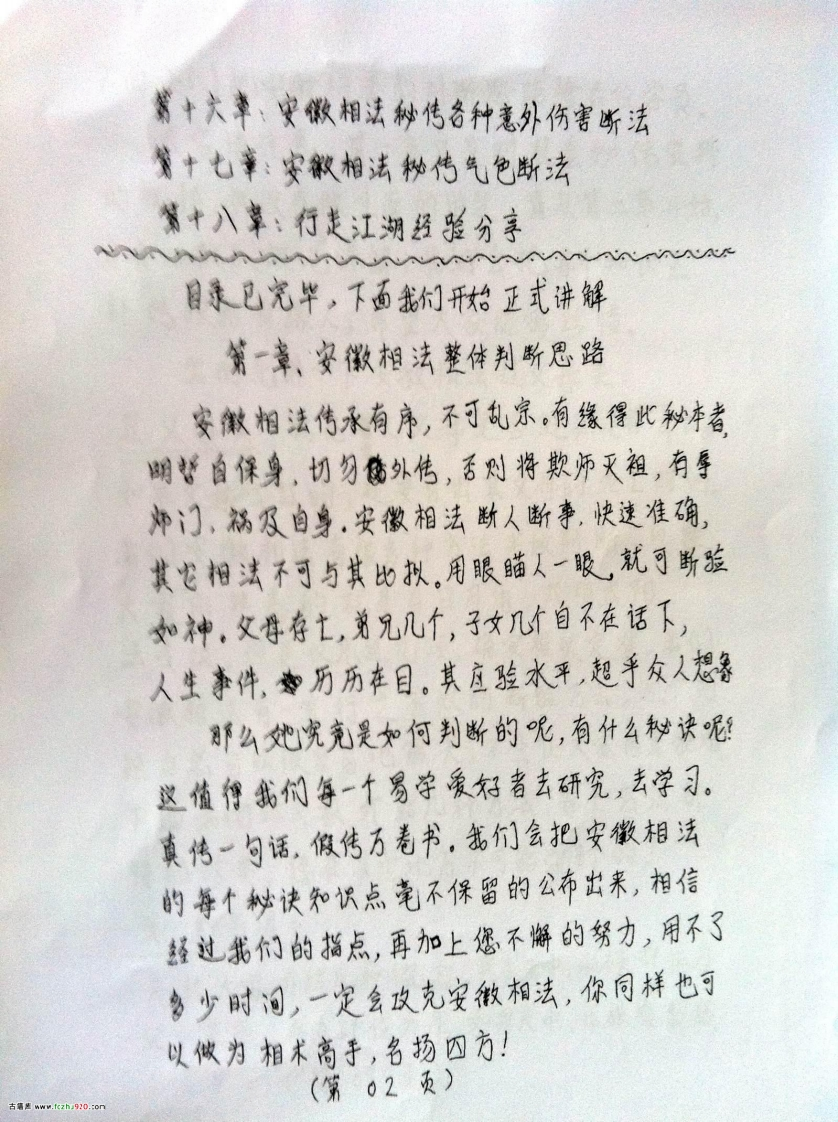 第十六章：安徽相法秘传各种意外伤害断法
第十七章：安徽相法秘传气色断法
第十八章：行走江湖经验分享
目录已完毕，下面我们开始正式讲解
第一章、安徽相法整体判断思路
安徽相法传承有序，不可乱宗。有缘得此秘本者，
明哲自保身，切勿外传，否则将欺师灭祖，有辱
师门，祸及自身。安徽相法断人断事，快速准确，
其它相法不可与其比拟。用眼瞄人一眼，就可断验
如神。父母存亡，弟兄几个，子女几个自不在话下，
人生事件，历历在目。其应验水平，超乎众人想象
那么她究竟是如何判断的呢，有什么秘诀呢？
这值得我们每一个易学爱好者去研究，去学习。
真传一句话，假传万卷书。我们会把安徽相法
的每个秘诀知识点毫不保留的公布出来，相信
经过我们的指点，再加上您不懈的努力，用不了
多少时间，一定会攻克安徽相法，你同样也可
以做为相术高手，名扬四方！
（第02页）
www.fczhu920.com